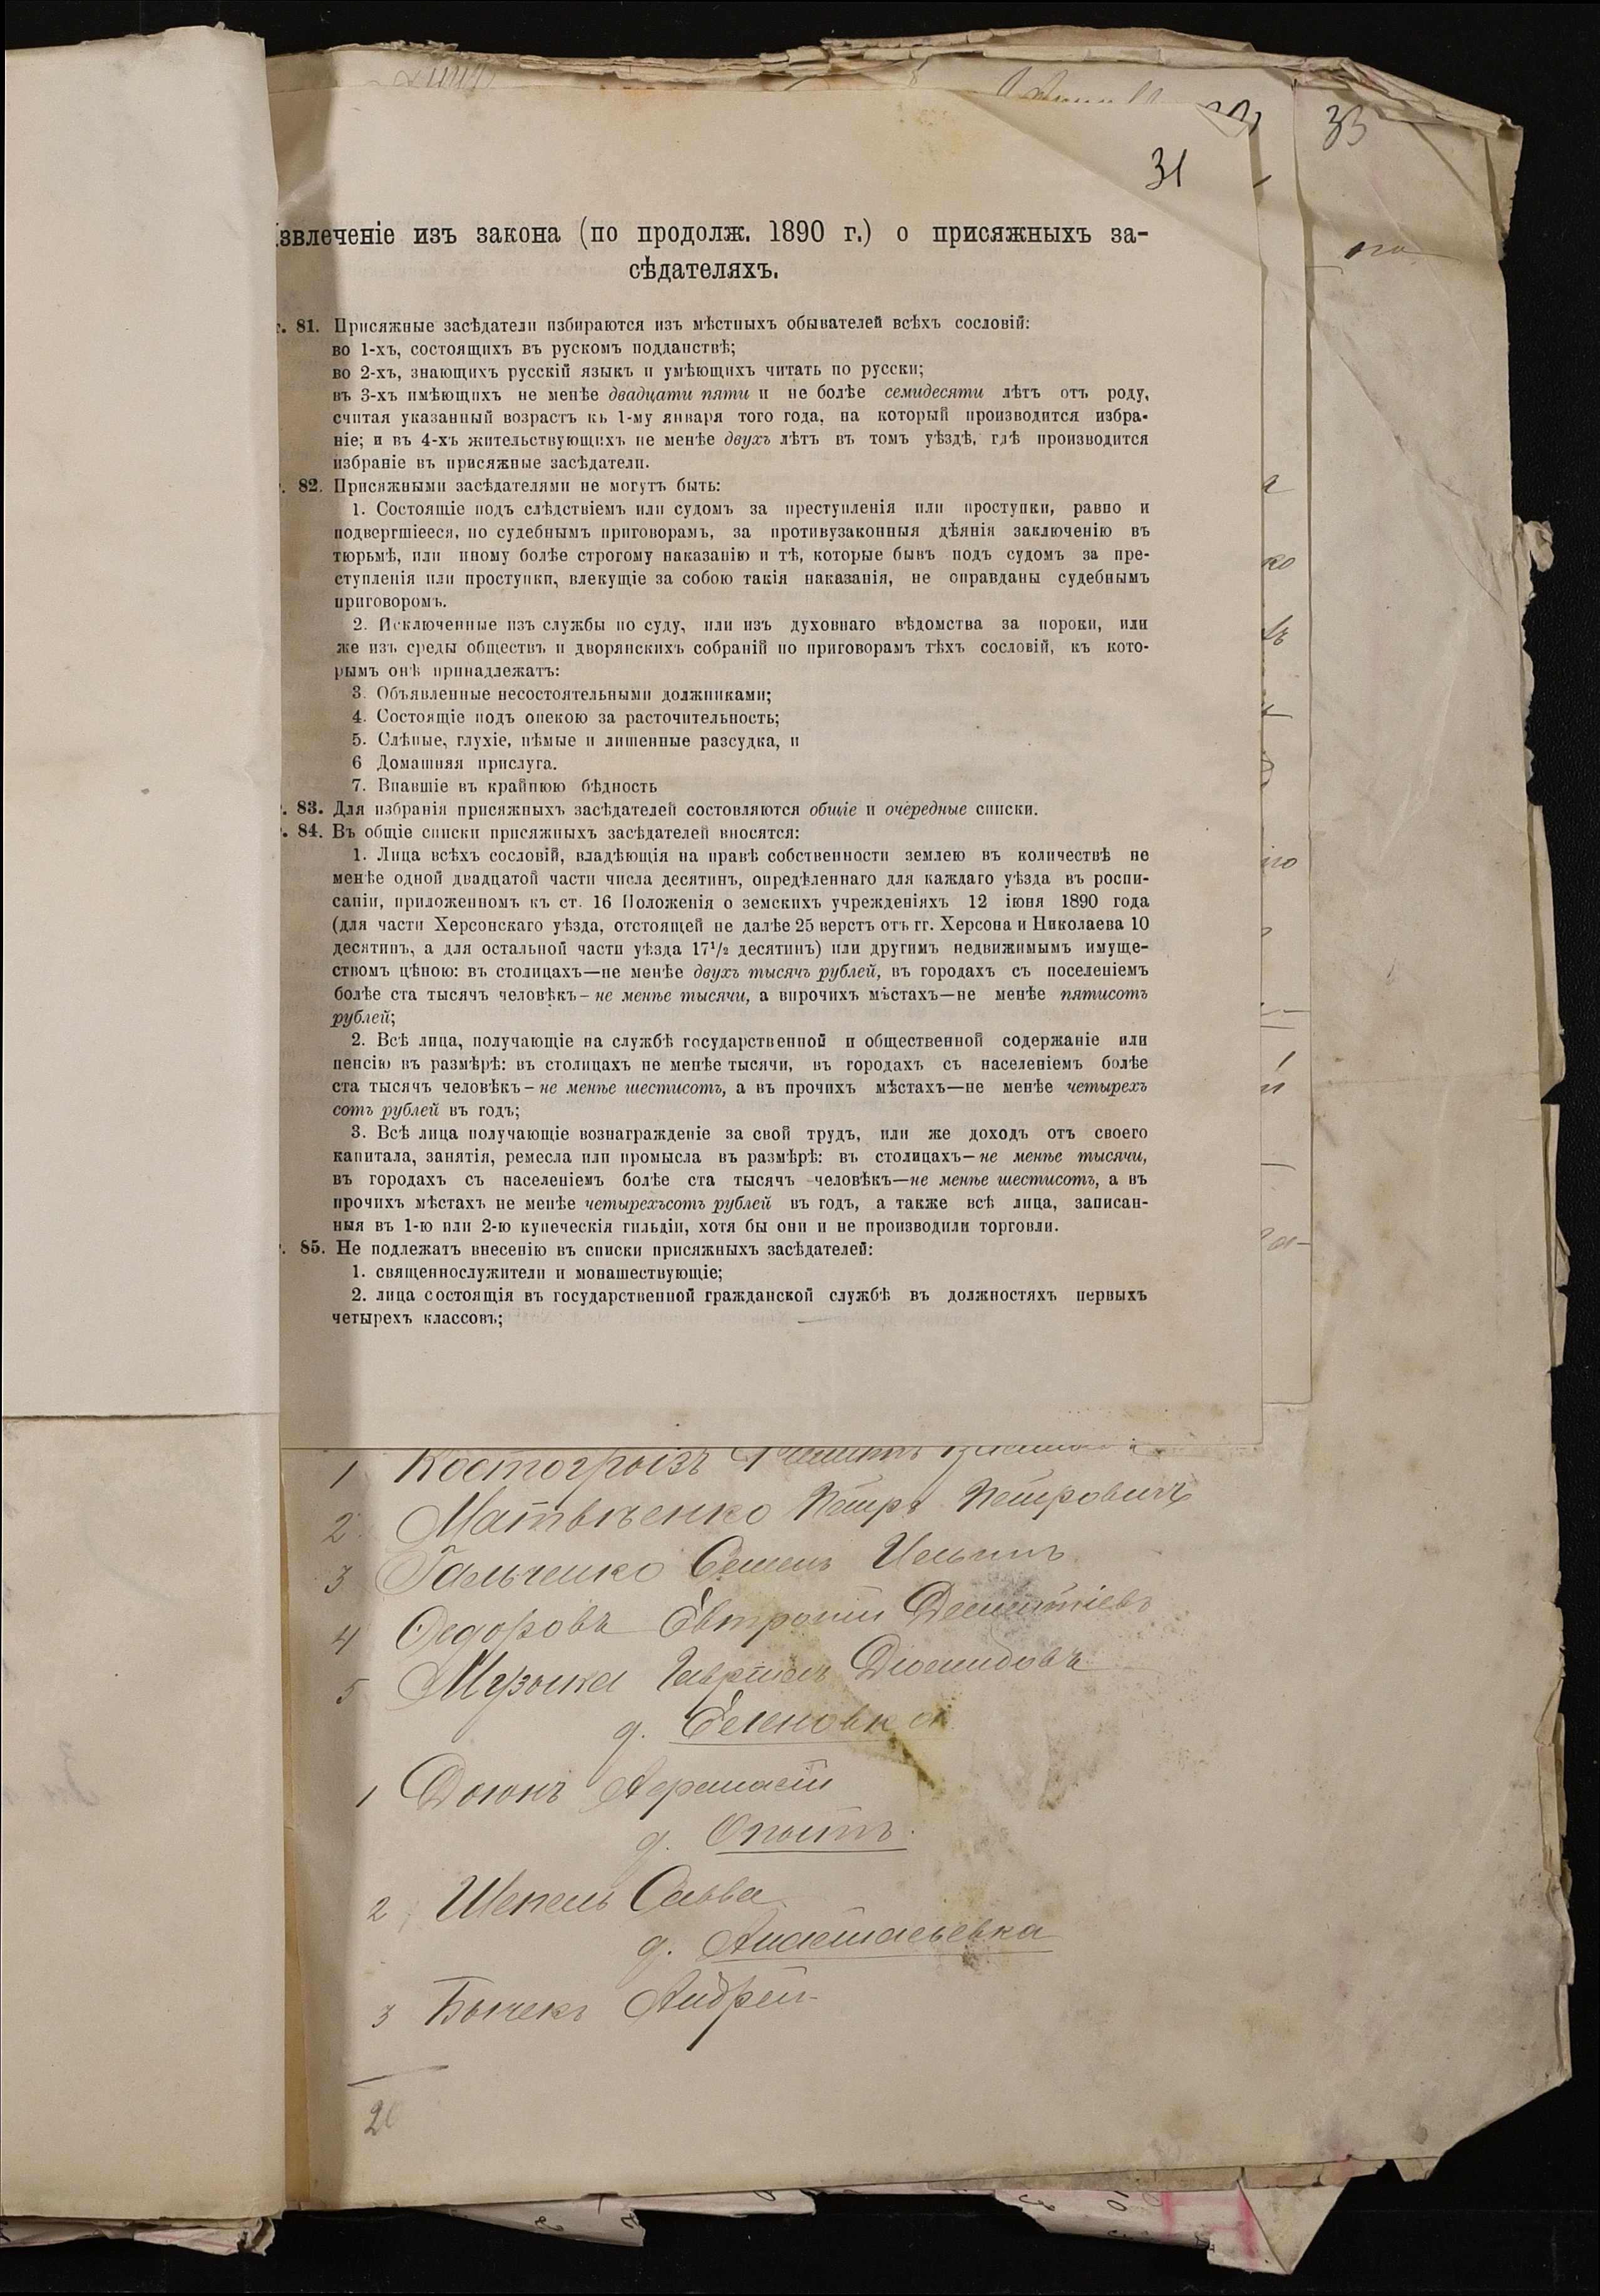 33
31
звлеченіе изъ закона (по продолж. 1890 г.) о присяжныхъ за-
сѣдателяхъ.
81. Присяжные засѣдатели избираются изъ мѣстныхъ обывателей всѣхъ сословій:
во 1-хъ, состоящихъ въ рускомъ подданствѣ;
во 2-хъ, знающихъ русскій языкъ и умѣющихъ читать по русски;
въ 3-хъ имѣющихъ не менѣе двадцати пяти и не болѣе семидесяти лѣтъ отъ роду,
считая указанный возрастъ къ 1-му января того года, на который производится избра-
ніе; и въ 4-хъ жительствующихъ не менѣе двухъ лѣтъ въ томъ уѣздѣ, гдѣ производится
избраніе въ присяжные засѣдатели.
82. Присяжными засѣдателями не могутъ быть:
1. Состоящіе подъ слѣдствіемъ или судомъ за преступленія или проступки, равно и
подвергшіееся, по судебнымъ приговорамъ, за противузаконныя дѣянія заключенію въ
тюрьмѣ, или иному болѣе строгому наказанію и тѣ, которые бывъ подъ судомъ за пре-
ступленія или проступки, влекущіе за собою такія наказанія, не оправданы судебнымъ
приговоромъ.
2. Исключенные изъ службы по суду, или изъ духовнаго вѣдомства за пороки, или
же изъ среды обществъ и дворянскихъ собраній по приговорамъ тѣхъ сословій, къ кото-
рымъ онѣ принадлежатъ:
3. Объявленные несостоятельными должниками;
4. Состоящіе подъ опекою за расточительность;
5. Слѣпые, глухіе, нѣмые и лишенные разсудка, и
6 Домашняя прислуга.
7. Впавшіе въ крайнюю бѣдность
83. Для избранія присяжныхъ засѣдателей состовляются общіе и очередные списки.
84. Въ общіе списки присяжныхъ засѣдателей вносятся:
1. Лица всѣхъ сословій, владѣющія на правѣ собственности землею въ количествѣ не
менѣе одной двадцатой части числа десятинъ, опредѣленнаго для каждаго уѣзда въ роспи-
саніи, приложенномъ къ ст. 16 Положенія о земскихъ учрежденіяхъ 12 іюня 1890 года
(для части Херсонскаго уѣзда, отстоящей не далѣе 25 верстъ отъ гг. Херсона и Николаева 10
десятинъ, а для остальной части уѣзда 17¹/₂ десятинъ) или другимъ недвижимымъ имуще-
ствомъ цѣною: въ столицахъ—не менѣе двухъ тысячъ рублей, въ городахъ съ поселеніемъ
болѣе ста тысячъ человѣкъ – не менѣе тысячи, а впрочихъ мѣстахъ—не менѣе пятисотъ
рублей;
2. Всѣ лица, получающіе на службѣ государственной и общественной содержаніе или
пенсію въ размѣрѣ: въ столицахъ не менѣе тысячи, въ городахъ съ населеніемъ болѣе
ста тысячъ человѣкъ – не менѣе шестисотъ, а въ прочихъ мѣстахъ—не менѣе четырехъ
сотъ рублей въ годъ;
3. Всѣ лица получающіе вознагражденіе за свой трудъ, или же доходъ отъ своего
капитала, занятія, ремесла или промысла въ размѣрѣ: въ столицахъ—не менѣе тысячи,
въ городахъ съ населеніемъ болѣе ста тысячъ человѣкъ—не менѣе шестисотъ, а въ
прочихъ мѣстахъ не менѣе четырехъсотъ рублей въ годъ, а также всѣ лица, записан-
ныя въ 1-ю или 2-ю купеческія гильдіи, хотя бы они и не производили торговли.
85. Не подлежатъ внесенію въ списки присяжныхъ засѣдателей:
1. священнослужители и монашествующіе;
2. лица состоящія въ государственной гражданской службѣ въ должностяхъ первыхъ
четырехъ классовъ;
1 Костогрызъ
2 Матвѣенко Петръ Петровичъ
3 Гальченко Семенъ Ильинъ
4 Федоровъ Евтропій Дементіевъ
5 Музыка Гавріилъ Діомидовъ
д. Еленовка
1 Доюнъ Афанасій
д. Опытъ.
2 Шепель Савва
д. Анастасьевка
3 Бычекъ Андрей